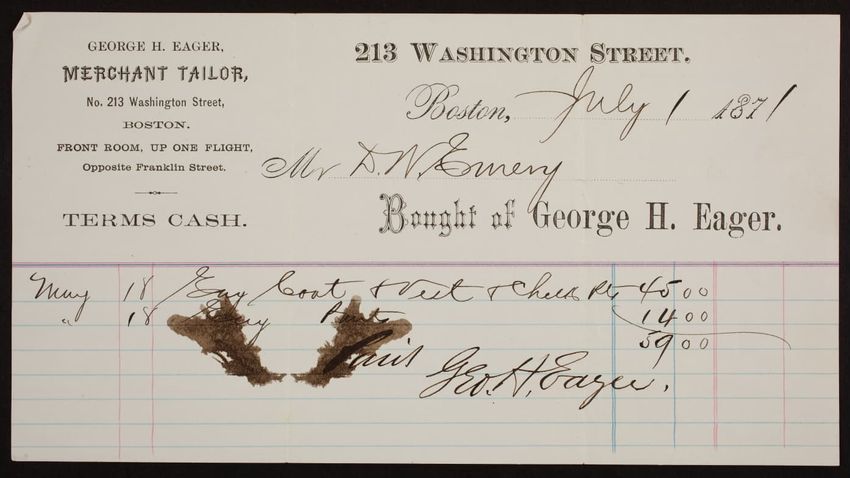 GEORGE H. EAGER,
MERCHANT TAILOR,
No. 213 Washington Street,
BOSTON.
FRONT ROOM, UP ONE FLIGHT,
Opposite Franklin Street.
TERMS CASH.
213 WASHINGTON STREET.
Boston, July 1 1871
Mr D. W. Emery
Bought of George H. Eager.
May 18 Coat & Vest & 45 00
" 18 Pants 14 00
59 00
Paid
Geo. H. Eager.